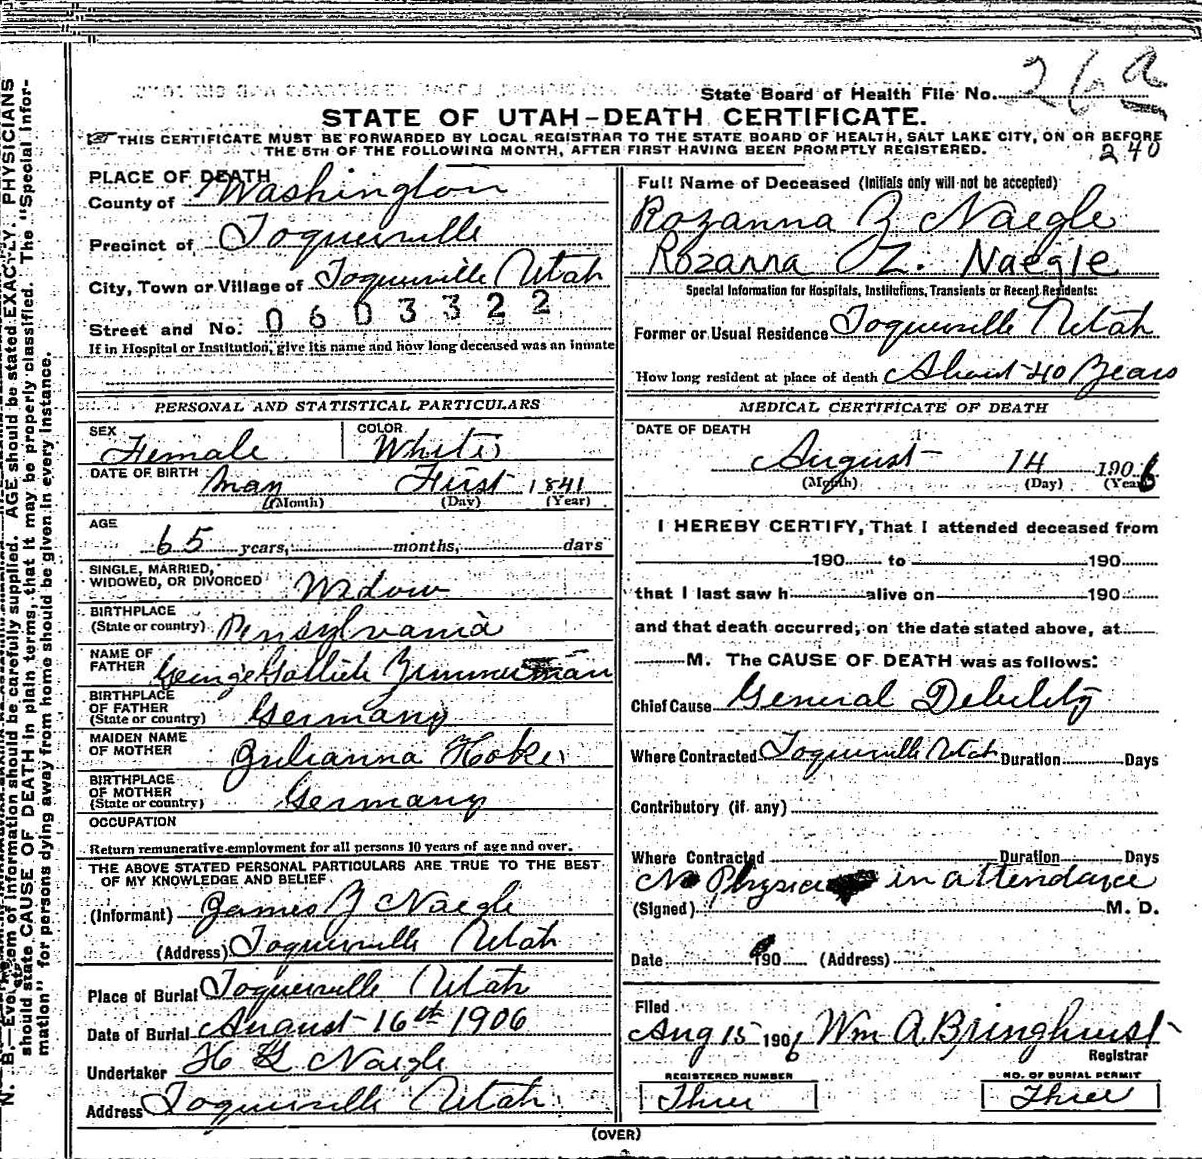 State Board of Health File No. 26 a
STATE OF UTAH–DEATH CERTIFICATE.
THIS CERTIFICATE MUST BE FORWARDED BY LOCAL REGISTRAR TO THE STATE BOARD OF HEALTH, SALT LAKE CITY, ON OR BEFORE
THE 5TH OF THE FOLLOWING MONTH, AFTER FIRST HAVING BEEN PROMPTLY REGISTERED.
240
PLACE OF DEATH
County of Washington
Precinct of Toquerville
City, Town or Village of Toquerville Utah
Street and No. 0603322
If in Hospital or Institution, give its name and how long deceased was an inmate
PERSONAL AND STATISTICAL PARTICULARS
SEX Female COLOR White
DATE OF BIRTH May First 1841
(Month) (Day) (Year)
AGE
65 years, months, days
SINGLE, MARRIED,
WIDOWED, OR DIVORCED Widow
BIRTHPLACE
(State or country) Pensylvania
NAME OF
FATHER George Gottlieb Zimmerman
BIRTHPLACE
OF FATHER
(State or country) Germany
MAIDEN NAME
OF MOTHER Julianna Hoke
BIRTHPLACE
OF MOTHER
(State or country) Germany
OCCUPATION
Return remunerative employment for all persons 10 years of age and over.
THE ABOVE STATED PERSONAL PARTICULARS ARE TRUE TO THE BEST
OF MY KNOWLEDGE AND BELIEF
(Informant) James Z Naegle
(Address) Toquerville Utah
Place of Burial Toquerville Utah
Date of Burial August 16th 1906
Undertaker H Naegle
Address Toquerville Utah
Full Name of Deceased (Initials only will not be accepted)
Rozanna Z Naegle
Rozanna Z. Naegle
Special Information for Hospitals, Institutions, Transients or Recent Residents:
Former or Usual Residence Toquerville Utah
How long resident at place of death About 40 Years
MEDICAL CERTIFICATE OF DEATH
DATE OF DEATH
August 14 1906
(Month) (Day) (Year)
I HEREBY CERTIFY, That I attended deceased from
190 to 190
that I last saw h alive on 190
and that death occurred, on the date stated above, at
M. The CAUSE OF DEATH was as follows:
Chief Cause General Debility
Where Contracted Toquerville Utah Duration Days
Contributory (if any)
Where Contracted Duration Days
No Physician in attendance
(Signed) M. D.
Date 190 (Address)
Filed
Aug 15 1906 Wm A. Bringhurst
Registrar
REGISTERED NUMBER
Three
NO. OF BURIAL PERMIT
Three
(OVER)
N. B.—Every item of information should be carefully supplied. AGE should be stated EXACTLY. PHYSICIANS
should state CAUSE OF DEATH in plain terms, that it may be properly classified. The "Special Infor-
mation" for persons dying away from home should be given in every instance.